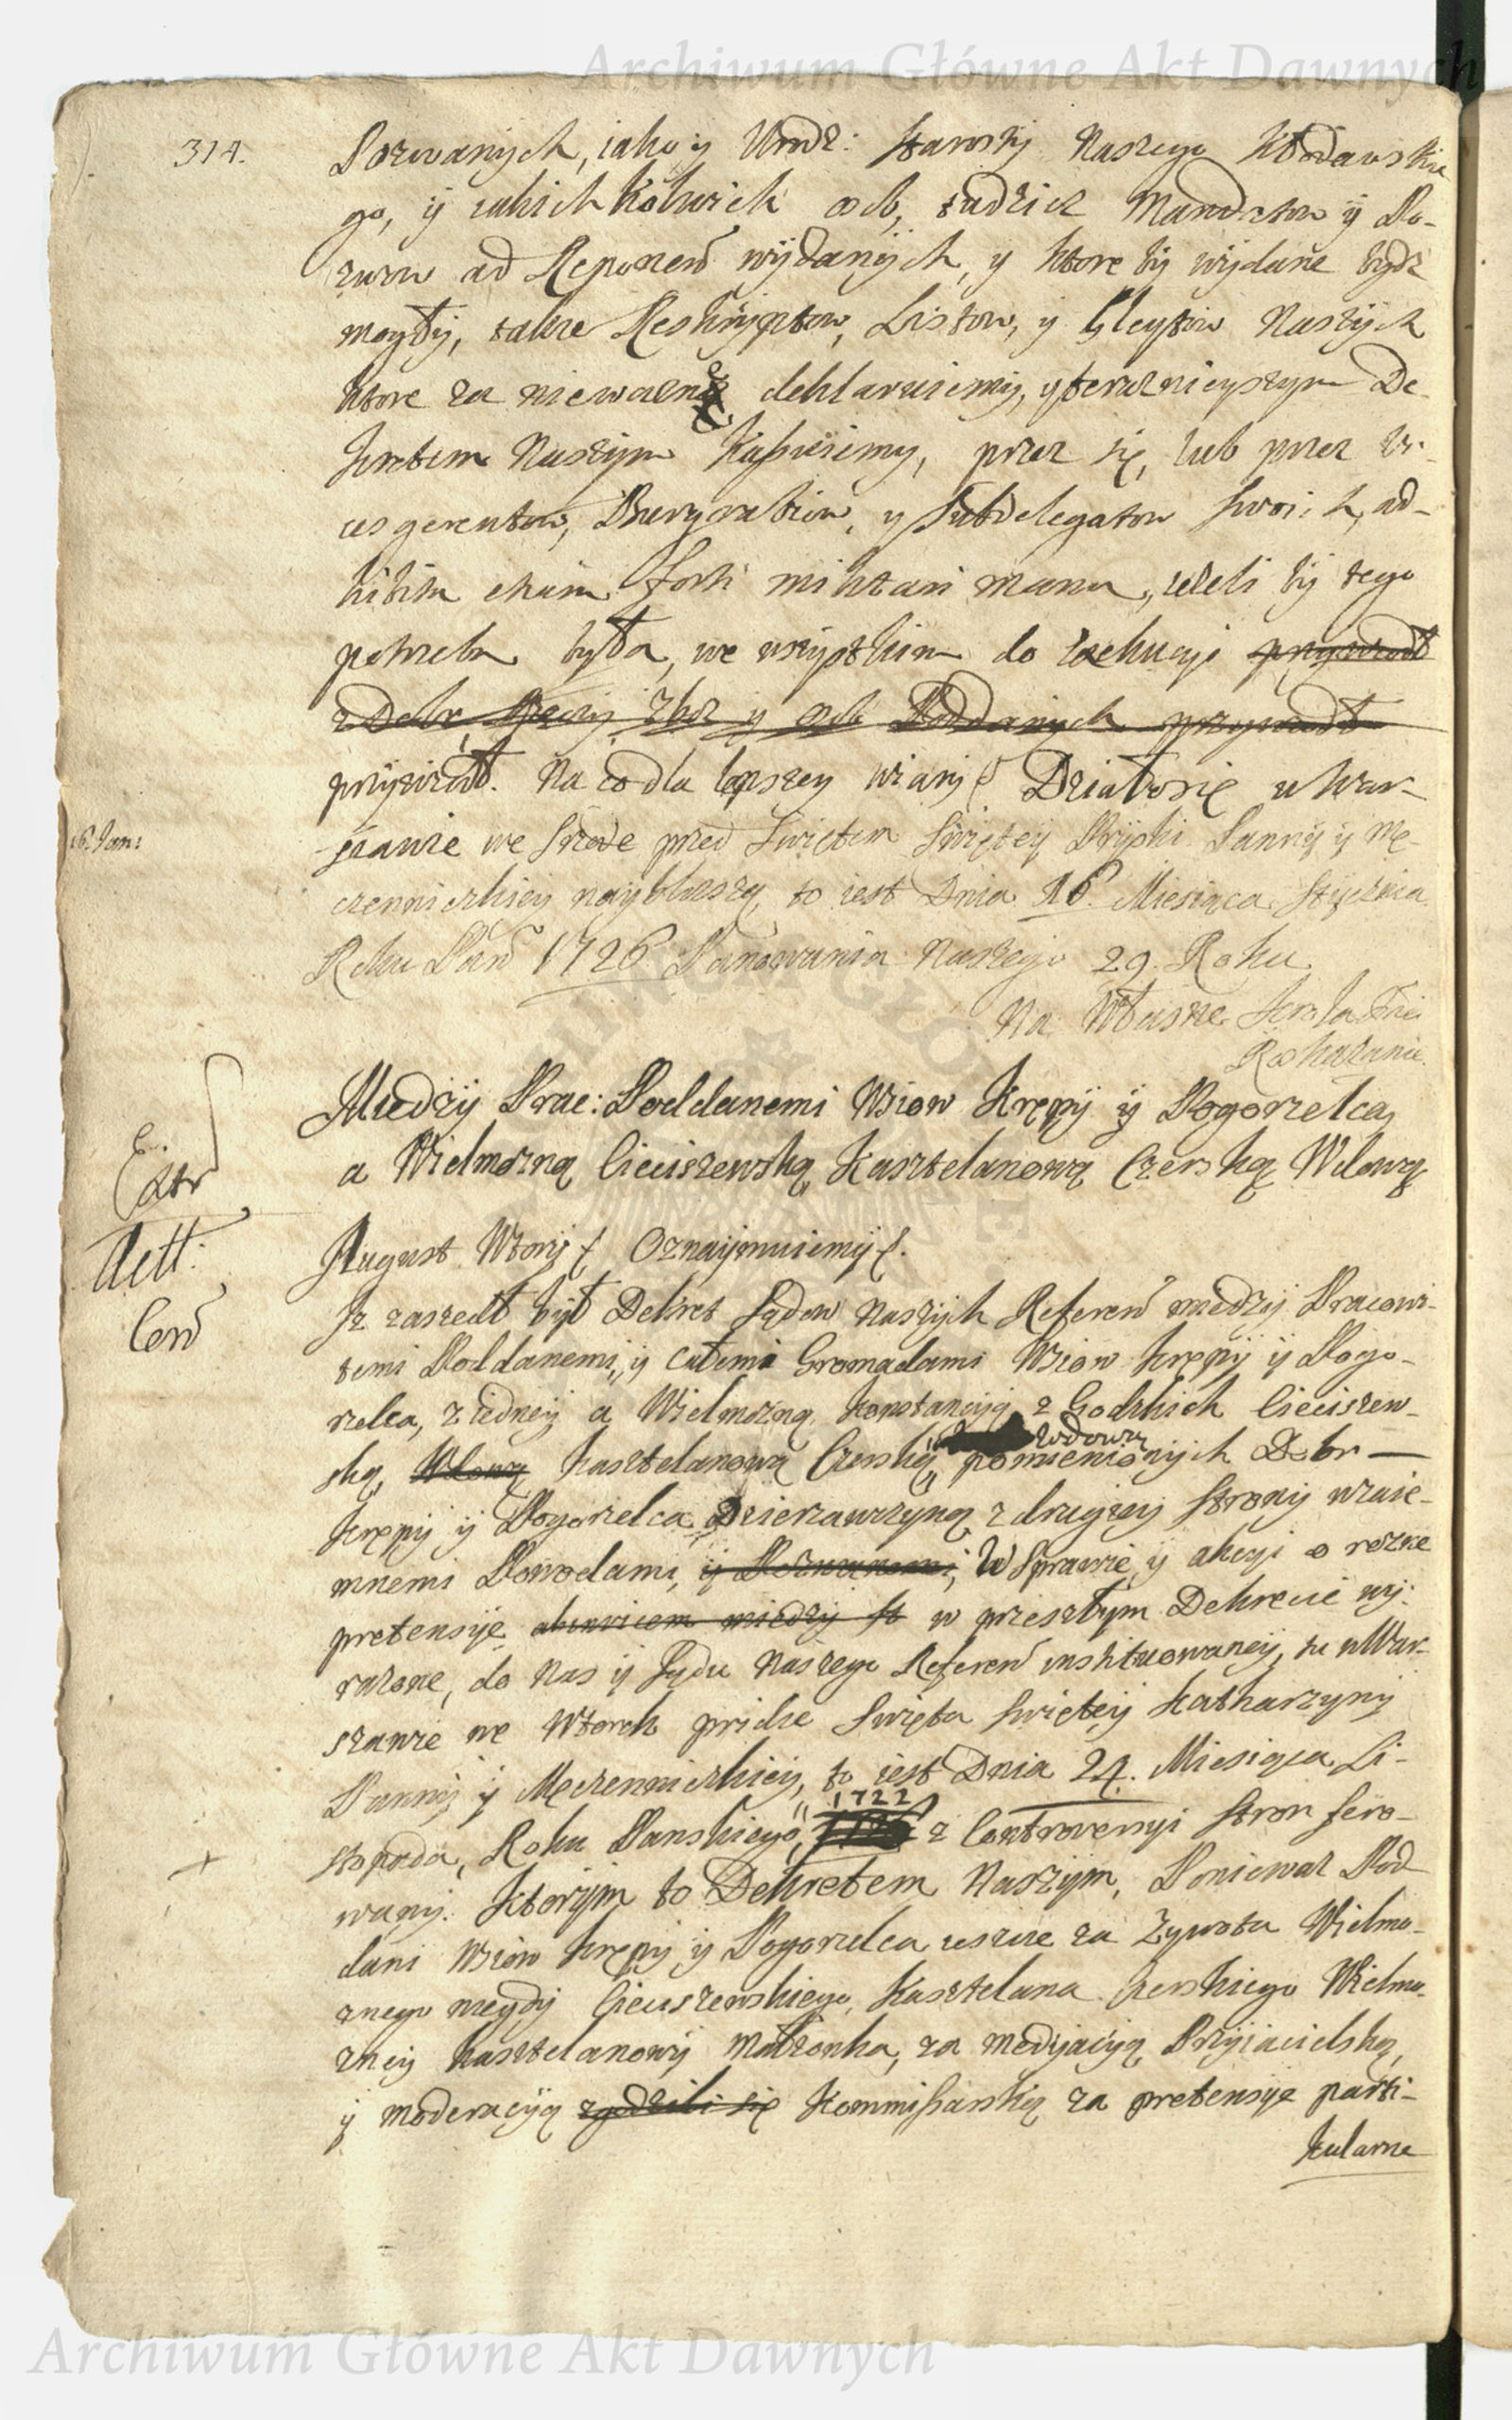 Archiwum Główne Akt Dawnych
314.
Pozwanych, iako y Urodz: Starosty Naszego Kłodawskie
go, y iakichkolwiek osob, tudzież Mandatow y Po-
zwow ad Reponen wydanych, y ktore by wydane bydz
mogły, także Reskryptow, Listow, y Gleytow Naszych
ktore za niewazne deklaruiemy, y teraznieyszym De-
kretem Naszym Kassuiemy, przez się, lub przez Vi-
ces gerentow, Burgrabiow, y Subdelegatow swoich, ad-
hibita etiam forti militari manu, ieżeli by tego
potrzeba była, we wszystkim do exekucyi przywiodł
z Dobr, Rzeczy, Zboz y osob Poddanych przywiodł
przywiodł. Na co dla lepszey wiary Działo się w War-
szawie we Srodę przed Swiętem Swiętey Pryski Panny y Mę-
czenniczkiey naybliższą, to iest Dnia 16. Miesiąca Stycznia
16. Jan:
Roku Pań 1726 Panowania Naszego 29. Roku.
Na Własne Krola Jmci
Roskazanie.
Miedzy Prac: Poddanemi Wsiow Krępy y Pogorzelca,
a Wielmozną Cieciszewską Kasztelanową Czerską Wdową
Extr
Rett:
Con
August Wtory Oznaymuiemy.
Iz zaszedł był Dekret Sądow Naszych Referen miedzy Pracowi-
temi Poddanemi, y całemi Gromadami Wsiow Krępy y Pogo-
rzelca, z iedney a Wielmozną Konstancyą z Godzkich Cieciszew-
ską, Wdową Kasztelanową Czerską, Wdową pomienionych Dobr —
Krępy y Pogorzelca Dzierzawczyną z drugiey strony wzaie-
mnemi Powodami, y Pozwanemi, w Sprawie, y akcyi o rozne
pretensye miedzy w przeszłym Dekrecie wy-
razone, do Nas y Sądu Naszego Referen instituowaney, tu w War-
szawie we Wtorek pridie Swięta Swiętey Katharzyny
Panny y Męczenniczkiey, to iest Dnia 24. Miesiąca Li-
stopada, Roku Panskiego, 1722 z Controversyi Stron fero-
wany. Ktorym to Dekretem Naszym, Poniewaz Pod
dani Wsiow Krępy y Pogorzelca ieszcze za Zywota Wielmo-
znego niegdy Cieciszewskiego, Kasztelana Czerskiego Wielmo-
zney Kasztelanowy Małzonka, za Medyacyą Przyiacielską,
y moderacyą zgodzili się Kommissarską za pretensye parti-
kularne
Archiwum Główne Akt Dawnych